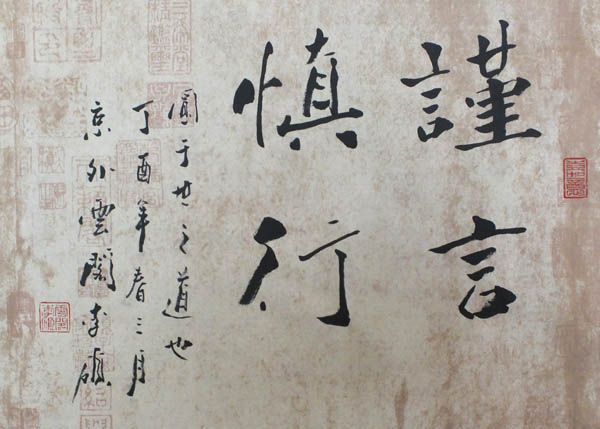 謹言
慎行
于世之道也
丁酉年春三月
京外雲閣李碩